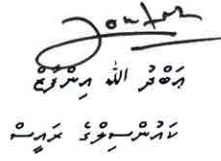 ޢަބްދު الله އިންފާޒް
ކައުންސިލްގެ ރައީސް